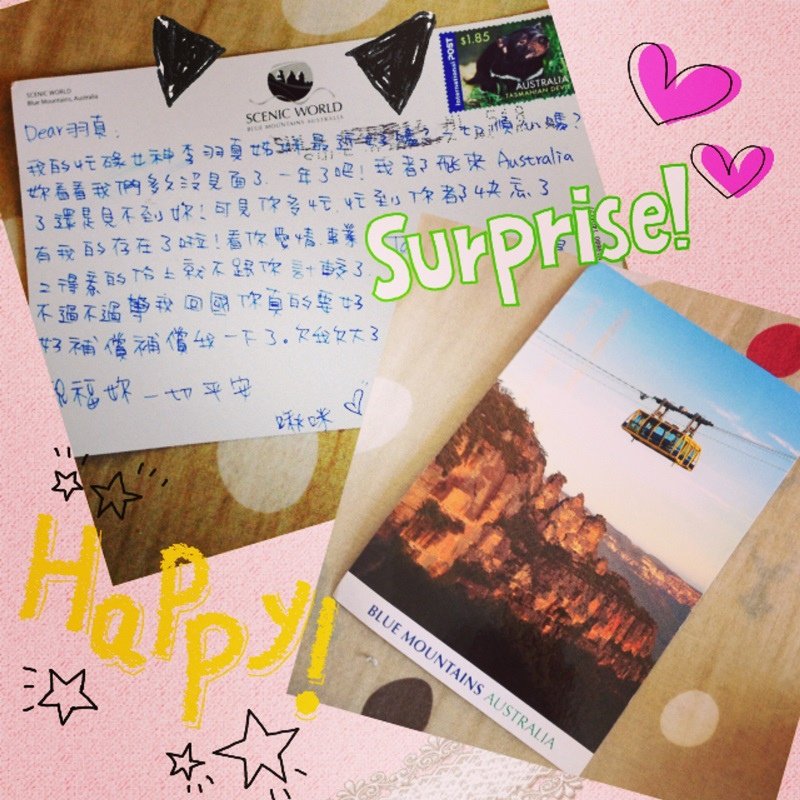 SCENIC WORLD
Blue Mountains, Australia
SCENIC WORLD
BLUE MOUNTAINS AUSTRALIA
International POST
$1.85
AUSTRALIA
TASMANIAN DEVIL
Dear 羽真,
我的忙碌女神李羽真姑娘最近
妳看看我們多久沒見面了,一年了吧!我都飛來 Australia
了還是見不到妳!可見你多忙,忙到你都快忘了
有我的存在了啦!看你愛情.事業
得意的份上就不跟你計較了.
不過不過等我回國你真的要好
好補償補償我一下了。欠我欠大了
祝福妳一切平安
啾咪
Surprise!
BLUE MOUNTAINS AUSTRALIA
Happy!